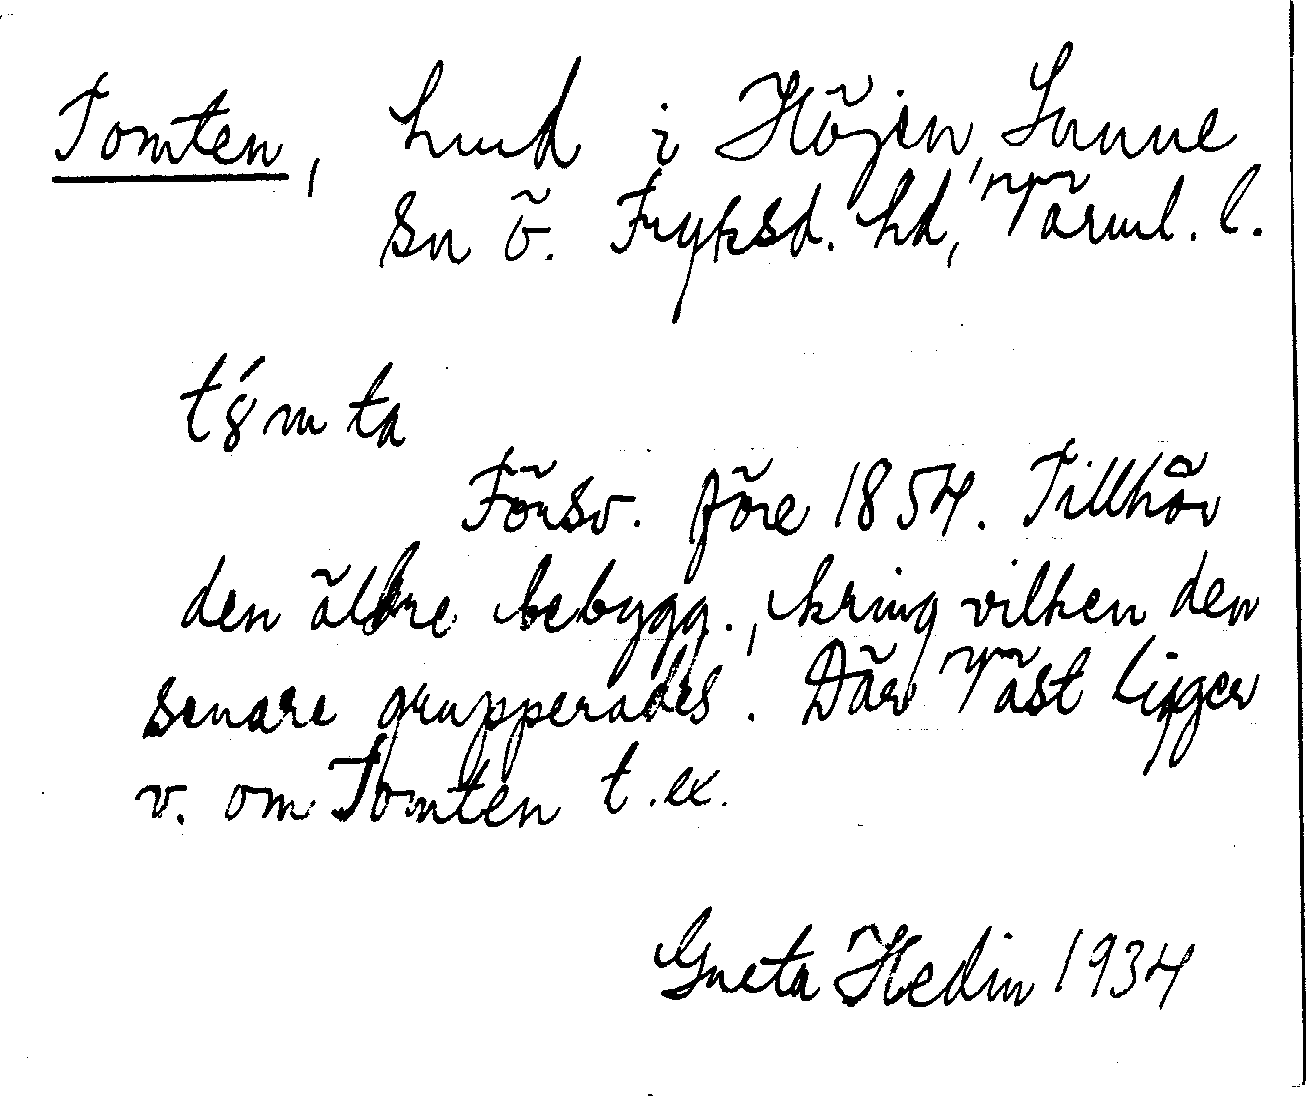 Tomten, hmd i Höjen, Sunne
sn Ö. Fryksd. hd, Värml. l.
t8́mta
Försv. före 1854. Tillhör
den äldre bebygg., kring vilken den
senare grupperades. Där Väst ligger
v. om Tomten t.ex.
Greta Hedin 1934